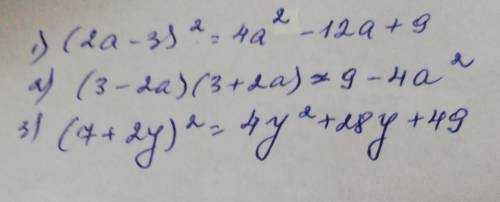 1) (2a - 3)² = 4a² - 12a + 9
2) (3 - 2a)(3 + 2a) = 9 - 4a²
3) (7 + 2y)² = 4y² + 28y + 49